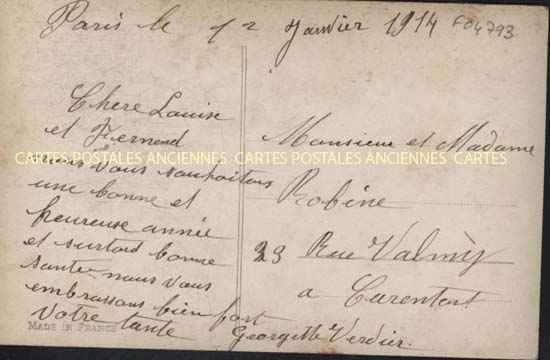 Paris le 12 Janvier 1914
F04793
Chere Louise
et Fernend
nous vous souhaitons
une bonne et
heureuse année
et surtout bonne
sante nous vous
embrassons bien fort
votre tante
Georgette Verdier.
Monsieur et Madame
Robine
23 Rue Valmy
a Carentant
CARTES POSTALES ANCIENNES CARTES POSTALES ANCIENNES CARTES
MADE IN FRANCE